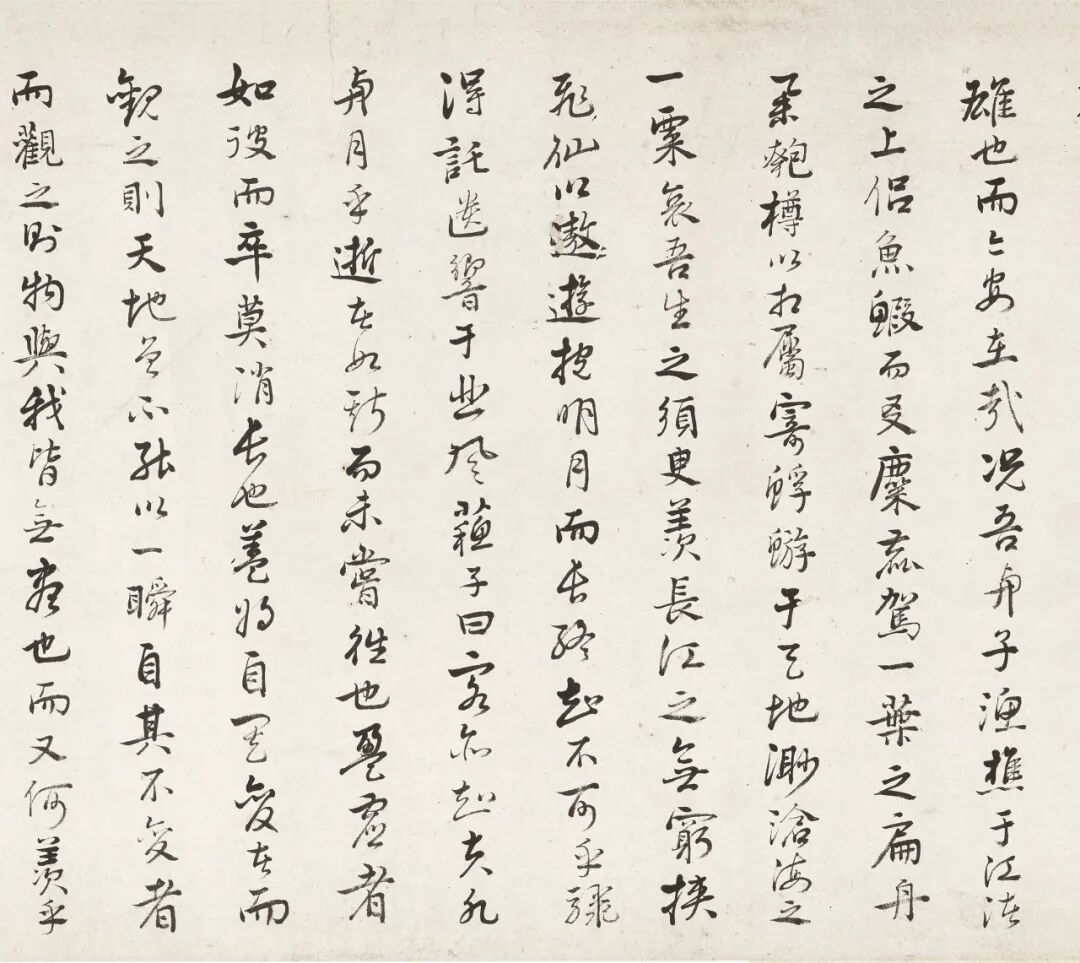 雄也而今安在哉况吾與子漁樵于江渚
之上侣魚鰕而友麋鹿駕一葉之扁舟
舉匏樽以相屬寄蜉蝣于天地渺滄海之
一粟哀吾生之須臾羡長江之無窮挾
飛仙以遨遊抱明月而長終知不可乎驟
得託遺響于悲風蘇子曰客亦知夫水
與月乎逝者如斯而未嘗往也盈虚者
如彼而卒莫消長也蓋將自其變者而
觀之則天地曾不能以一瞬自其不變者
而觀之則物與我皆無盡也而又何羡乎